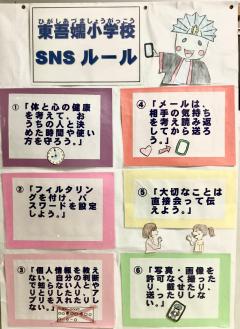 ひがしあづましょうがっこう
東吾嬬小学校
SNS ルール
①「体と心の健康
を考えて、お
うちの人と決
めた時間や使い
方を守ろう。」
②「フィルタリン
グを付け、パ
スワードを設定
しよう。」
③「個人情報を教え
ない。自分の判断
で知らない人とやり
とりしたり、アプ
リを入れたりし
ない。」
④「メールは、
相手の気持ち
を考え読み返
してから送ろ
う。」
⑤「大切なことは
直接会って伝
えよう。」
⑥「写真・画像を
許可なく撮った
り、載せたり、
送ったりしな
い。」